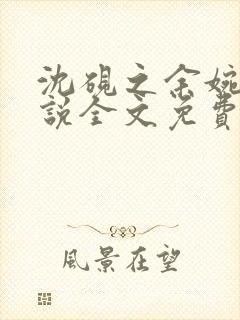 沈硯之余婉
説全文免費
風景在望